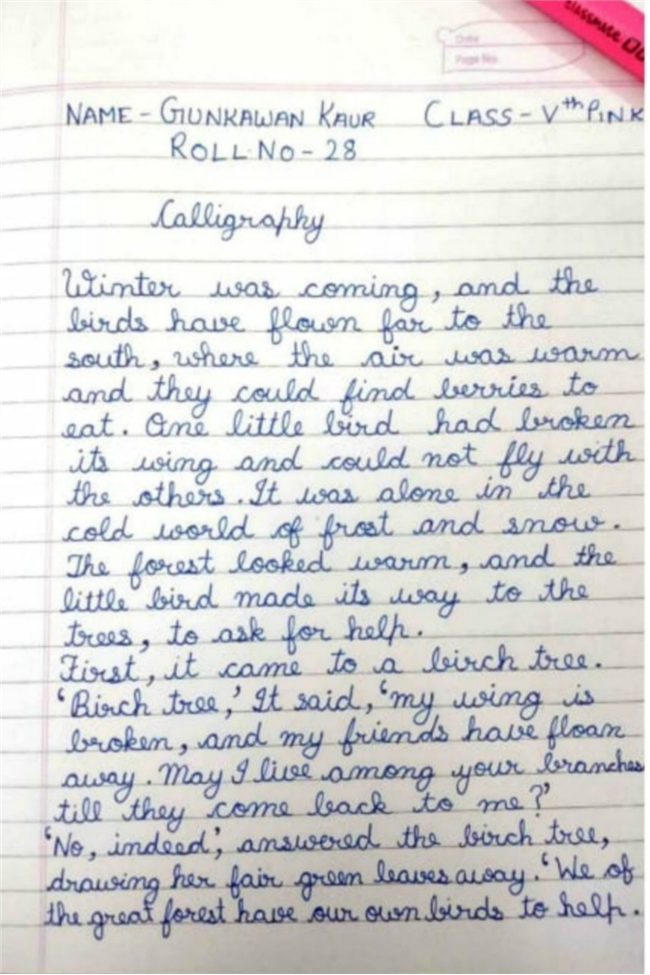 classmate
Date
Page No.
NAME - GUNKAWAN KAUR CLASS - Vth PINK
ROLL NO - 28
Calligraphy
Winter was coming, and the
birds have flown far to the
south, where the air was warm
and they could find berries to
eat. One little bird had broken
its wing and could not fly with
the others. It was alone in the
cold world of frost and snow.
The forest looked warm, and the
little bird made its way to the
trees, to ask for help.
First, it came to a birch tree.
'Birch tree,' It said, 'my wing is
broken, and my friends have floan
away. May I live among your branches
till they come back to me?'
'No, indeed', answered the birch tree,
drawing her fair green leaves away. 'We of
the great forest have our own birds to help.